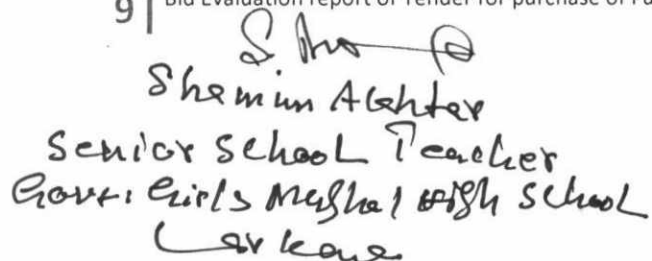 9 | Bid Evaluation report of Tender for purchase of Fu
Shamim Akhter
Senior School Teacher
Govt: Girls Mughal High School
Larkana